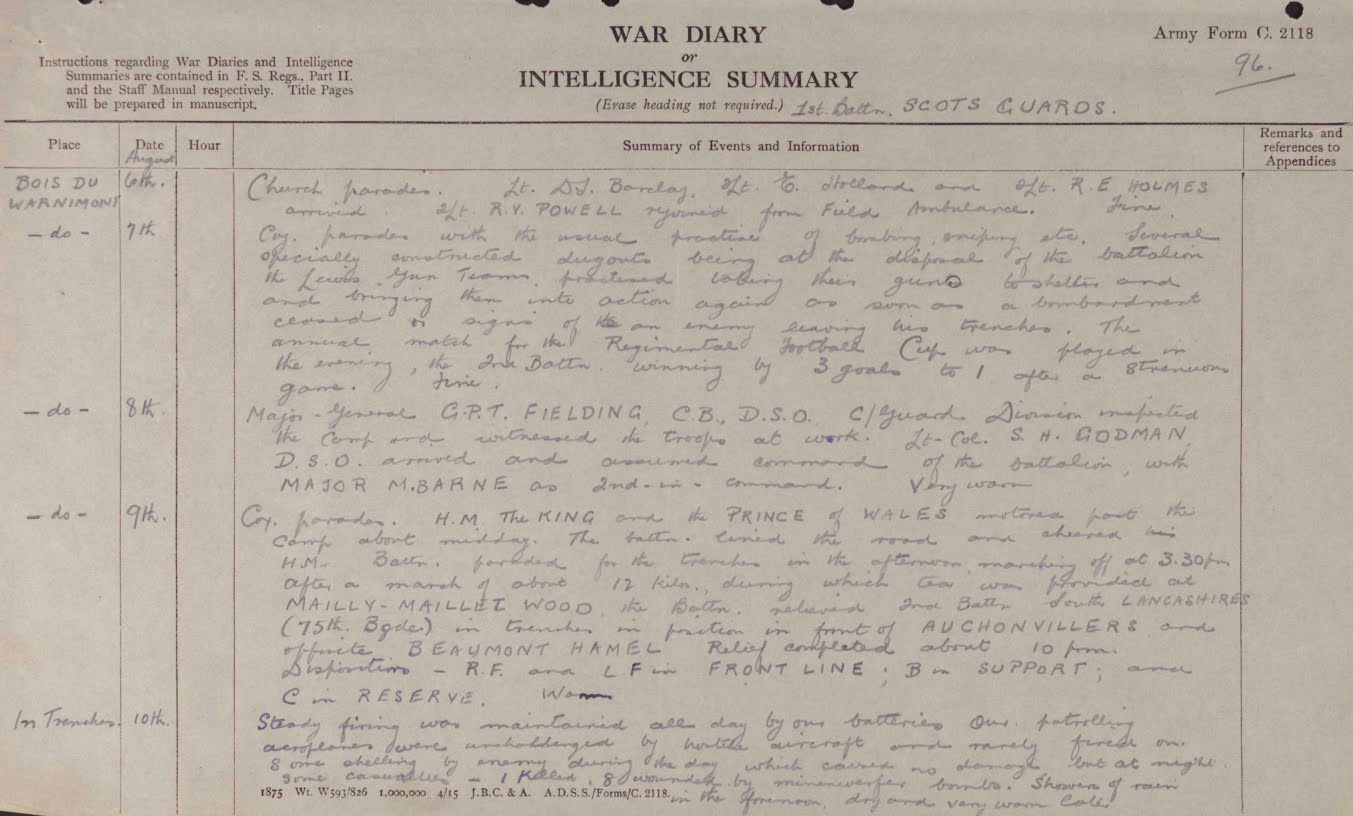 WAR DIARY
or
INTELLIGENCE SUMMARY
(Erase heading not required.) 1st. Battn. SCOTS GUARDS.
Army Form C. 2118
96.
Instructions regarding War Diaries and Intelligence
Summaries are contained in F. S. Regs., Part II.
and the Staff Manual respectively. Title Pages
will be prepared in manuscript.
Place
Date
August
Hour
Summary of Events and Information
Remarks and
references to
Appendices
BOIS DU
WARNIMONT
6th.
Church parades. Lt. D.S. Barclay, 2/Lt. E. Holland and 2/Lt. R.E HOLMES
arrived. 2/Lt. R.V. POWELL rejoined from Field Ambulance. Fine.
- do - 7th
Coy. parades with the usual practise of bombing, sniping etc. Several
specially constructed dugouts being at the disposal of the battalion
the Lewis Gun Teams practised taking their guns to shelter and
and bringing them into action again as soon as a bombardment
ceased or signs of an enemy leaving his trenches. The
annual match for the Regimental Football Cup was played in
the evening, the 2nd Battn. winning by 3 goals to 1 after a strenuous
game. Fine.
- do - 8th.
Major-General G.P.T. FIELDING, C.B., D.S.O. C/Guard Division inspected
the Camp and witnessed the troops at work. Lt-Col. S. H. GODMAN,
D.S.O. arrived and assumed command of the battalion, with
MAJOR M. BARNE as 2nd-in-command. Very warm
- do - 9th.
Coy. parades. H.M. The KING and the PRINCE of WALES motored past the
Camp about midday. The battn. lined the road and cheered
H.M. Battn. paraded for the trenches in the afternoon, marching off at 3.30pm.
After a march of about 12 kilos, during which tea was provided at
MAILLY-MAILLET WOOD, the Battn. relieved 2nd Battn South LANCASHIRES
(75th. Bgde) in trenches in position in front of AUCHONVILLERS and
opposite BEAUMONT HAMEL Relief completed about 10 p.m.
Dispositions - R.F. and L F in FRONT LINE; B in SUPPORT; and
C in RESERVE. Warm
In Trenches. 10th.
Steady firing was maintained all day by our batteries Our patrolling
aeroplanes were unchallenged by hostile aircraft and rarely fired on.
Some shelling by enemy during the day which caused no damage but at night
some casualties - 1 killed, 8 wounded by minenwerfer bombs. Showers of rain
in the forenoon, dry and very warm later
1875 Wt. W593/826 1,000,000 4/15 J.B.C. & A. A.D.S.S./Forms/C. 2118.